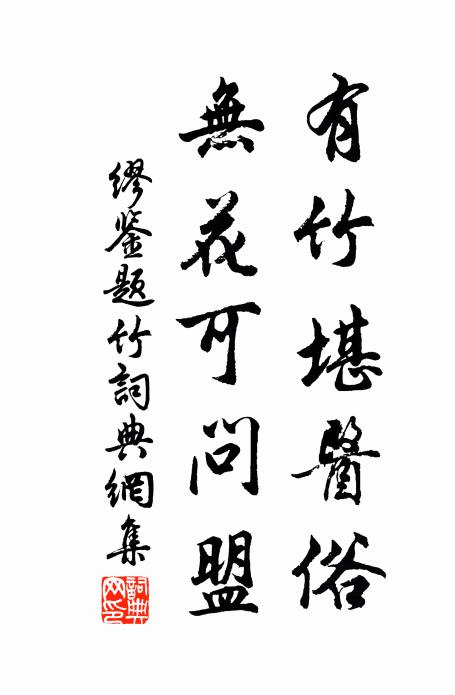 有竹堪醫俗
無花可問盟
繆鑒題竹詞典網集